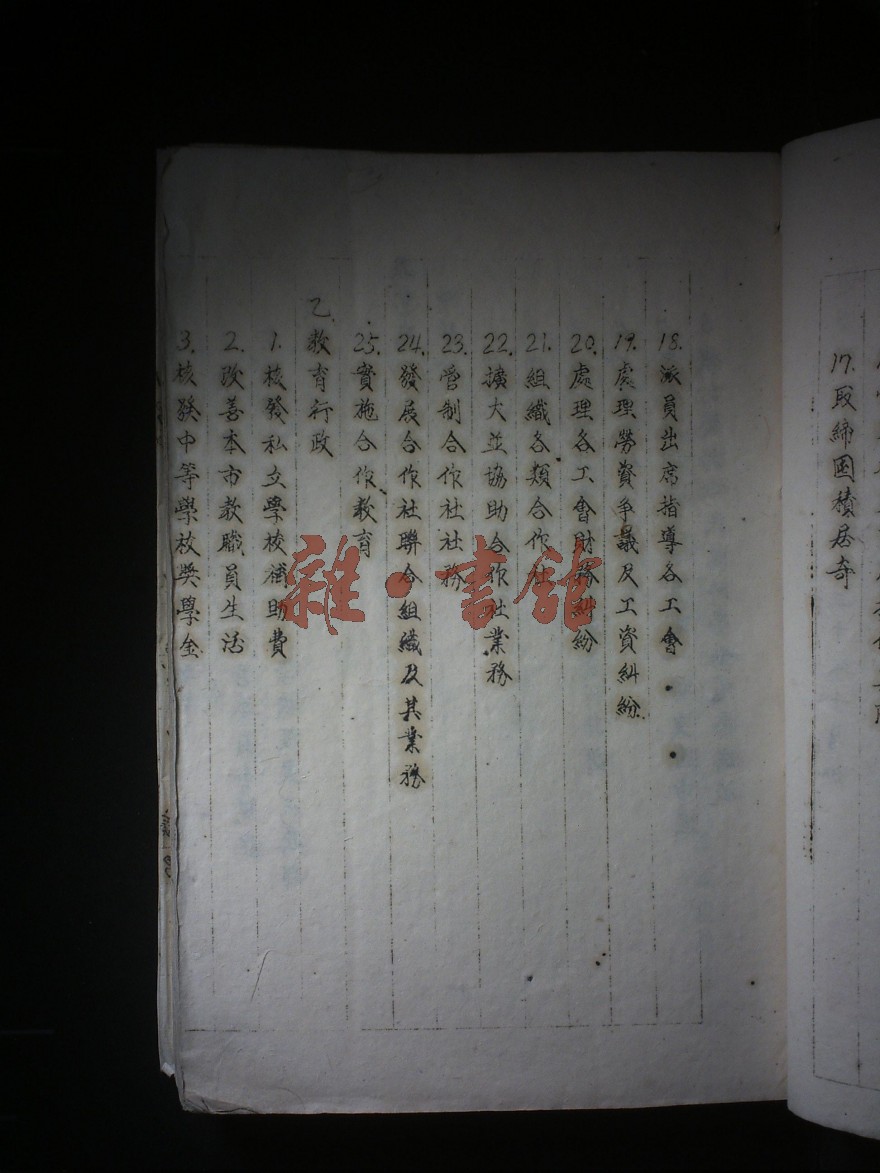 17.取締囤積居奇
18.派員出席指導各工會
19.處理勞資爭議及工資糾紛
20.處理各工會財務糾紛
21.組織各類合作社
22.擴大並協助合作社業務
23.管制合作社社務
24.發展合作社聯合組織及其業務
25.實施合作教育
乙.教育行政
1.核發私立學校補助費
2.改善本市教職員生活
3.核發中等學校獎學金
雜·書館